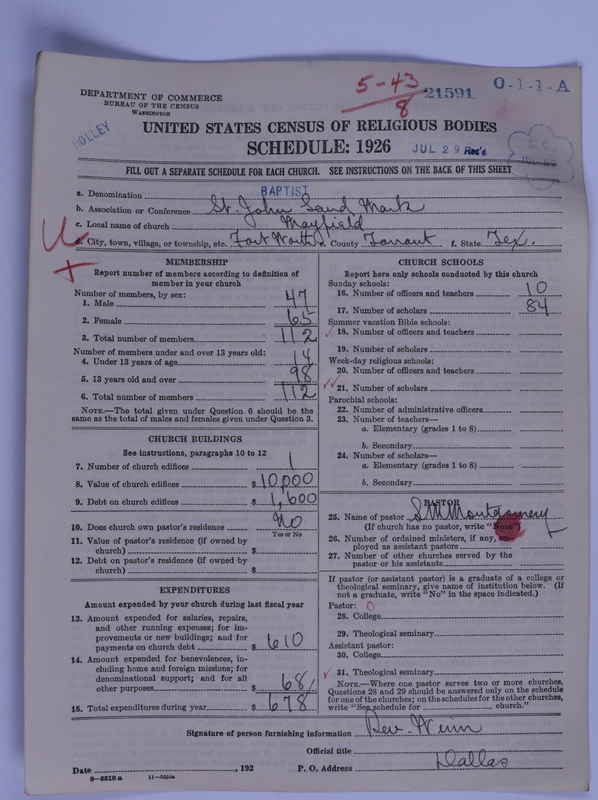 5-43
8
21591
O-1-1-A
DEPARTMENT OF COMMERCE
BUREAU OF THE CENSUS
WASHINGTON
HOLLEY
UNITED STATES CENSUS OF RELIGIOUS BODIES
SCHEDULE: 1926
JUL 29 Rec'd
FILL OUT A SEPARATE SCHEDULE FOR EACH CHURCH. SEE INSTRUCTIONS ON THE BACK OF THIS SHEET
a. Denomination BAPTIST
b. Association or Conference St. John Land Mark
c. Local name of church Mayfield
d. City, town, village, or township, etc. Fort Worth e. County Tarrant f. State Tex.
MEMBERSHIP
Report number of members according to definition of
member in your church
Number of members, by sex:
1. Male 47
2. Female 65
3. Total number of members 112
Number of members under and over 13 years old:
4. Under 13 years of age 14
5. 13 years old and over 98
6. Total number of members 112
NOTE.—The total given under Question 6 should be the
same as the total of males and females given under Question 3.
CHURCH BUILDINGS
See instructions, paragraphs 10 to 12
7. Number of church edifices 1
8. Value of church edifices $ 10,000
9. Debt on church edifices $ 1,600
10. Does church own pastor's residence No
Yes or No
11. Value of pastor's residence (if owned by
church) $
12. Debt on pastor's residence (if owned by
church) $
EXPENDITURES
Amount expended by your church during last fiscal year
13. Amount expended for salaries, repairs,
and other running expenses; for im-
provements or new buildings; and for
payments on church debt $ 610
14. Amount expended for benevolences, in-
cluding home and foreign missions; for
denominational support; and for all
other purposes $ 68
15. Total expenditures during year $ 678
CHURCH SCHOOLS
Report here only schools conducted by this church
Sunday schools:
16. Number of officers and teachers 10
17. Number of scholars 84
Summer vacation Bible schools:
18. Number of officers and teachers
19. Number of scholars
Week-day religious schools:
20. Number of officers and teachers
21. Number of scholars
Parochial schools:
22. Number of administrative officers
23. Number of teachers—
a. Elementary (grades 1 to 8)
b. Secondary
24. Number of scholars—
a. Elementary (grades 1 to 8)
b. Secondary
PASTOR
25. Name of pastor S M Montgomery
(If church has no pastor, write "None")
26. Number of ordained ministers, if any, em-
ployed as assistant pastors
27. Number of other churches served by the
pastor or his assistants
If pastor (or assistant pastor) is a graduate of a college or
theological seminary, give name of institution below. (If
not a graduate, write "No" in the space indicated.)
Pastor: 0
28. College
29. Theological seminary
Assistant pastor:
30. College
31. Theological seminary
NOTE.—Where one pastor serves two or more churches,
Questions 28 and 29 should be answered only on the schedule
for one of the churches; on the schedules for the other churches,
write "See schedule for church."
Signature of person furnishing information Rev. Winn
Official title
Date , 192 P. O. Address Dallas
8-5518 a 11-9054a